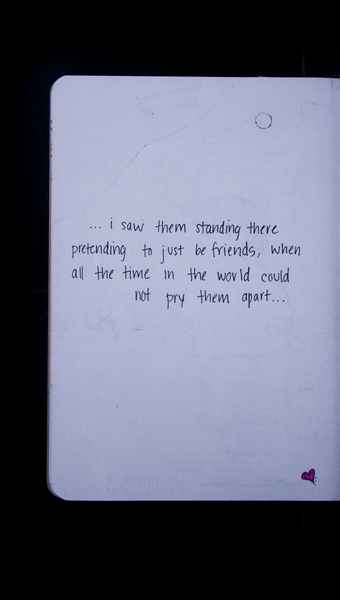 ... i saw them standing there
pretending to just be friends, when
all the time in the world could
not pry them apart...